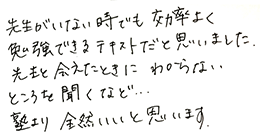 先生がいない時でも効率よく
勉強できるテキストだと思いました.
先生と会えたときに わからない
ところを聞くなど…
塾より 全然いいと思います.